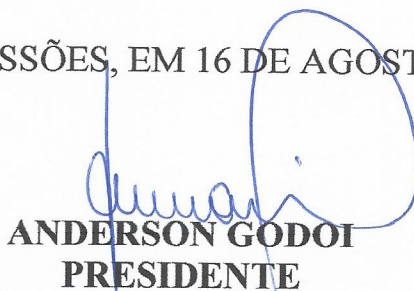 SSÕES, EM 16 DE AGOST
ANDERSON GODOI
PRESIDENTE